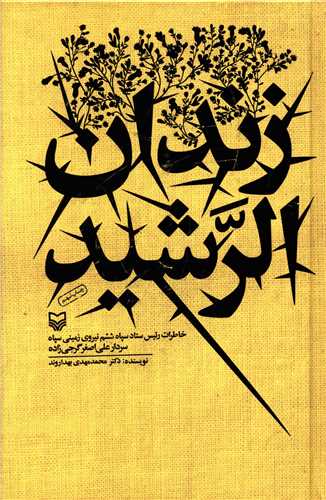 زندان
الرَّشید
خاطرات رئیس ستاد سپاه ششم نیروی زمینی سپاه
سردار علی‌اصغر گرجی‌زاده
نویسنده: دکتر محمدمهدی بهداروند